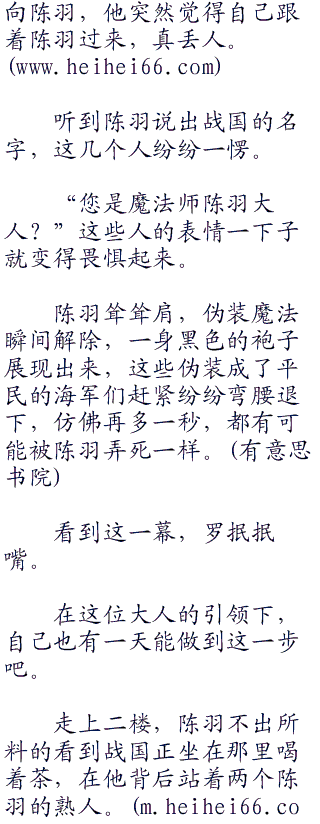 向陈羽，他突然觉得自己跟
着陈羽过来，真丢人。
(www.heihei66.com)
听到陈羽说出战国的名
字，这几个人纷纷一愣。
“您是魔法师陈羽大
人？”这些人的表情一下子
就变得畏惧起来。
陈羽耸耸肩，伪装魔法
瞬间解除，一身黑色的袍子
展现出来，这些伪装成了平
民的海军们赶紧纷纷弯腰退
下，仿佛再多一秒，都有可
能被陈羽弄死一样。(有意思
书院)
看到这一幕，罗抿抿
嘴。
在这位大人的引领下，
自己也有一天能做到这一步
吧。
走上二楼，陈羽不出所
料的看到战国正坐在那里喝
着茶，在他背后站着两个陈
羽的熟人。(m.heihei66.co